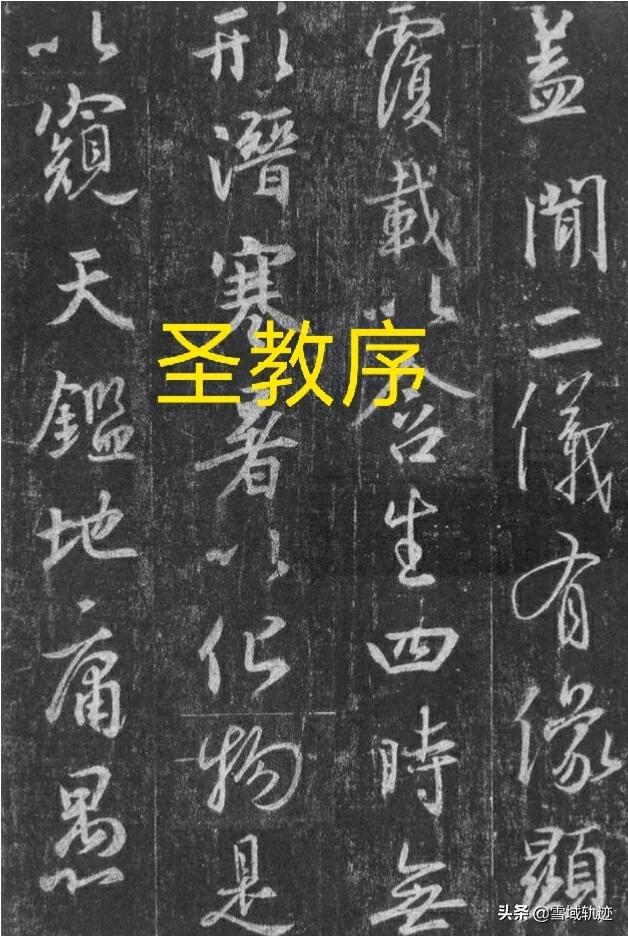 盖聞二儀有像顯
覆載以含生四時無
形潛寒暑以化物是
以窺天鑑地庸愚
圣教序
头条 @雪域轨迹